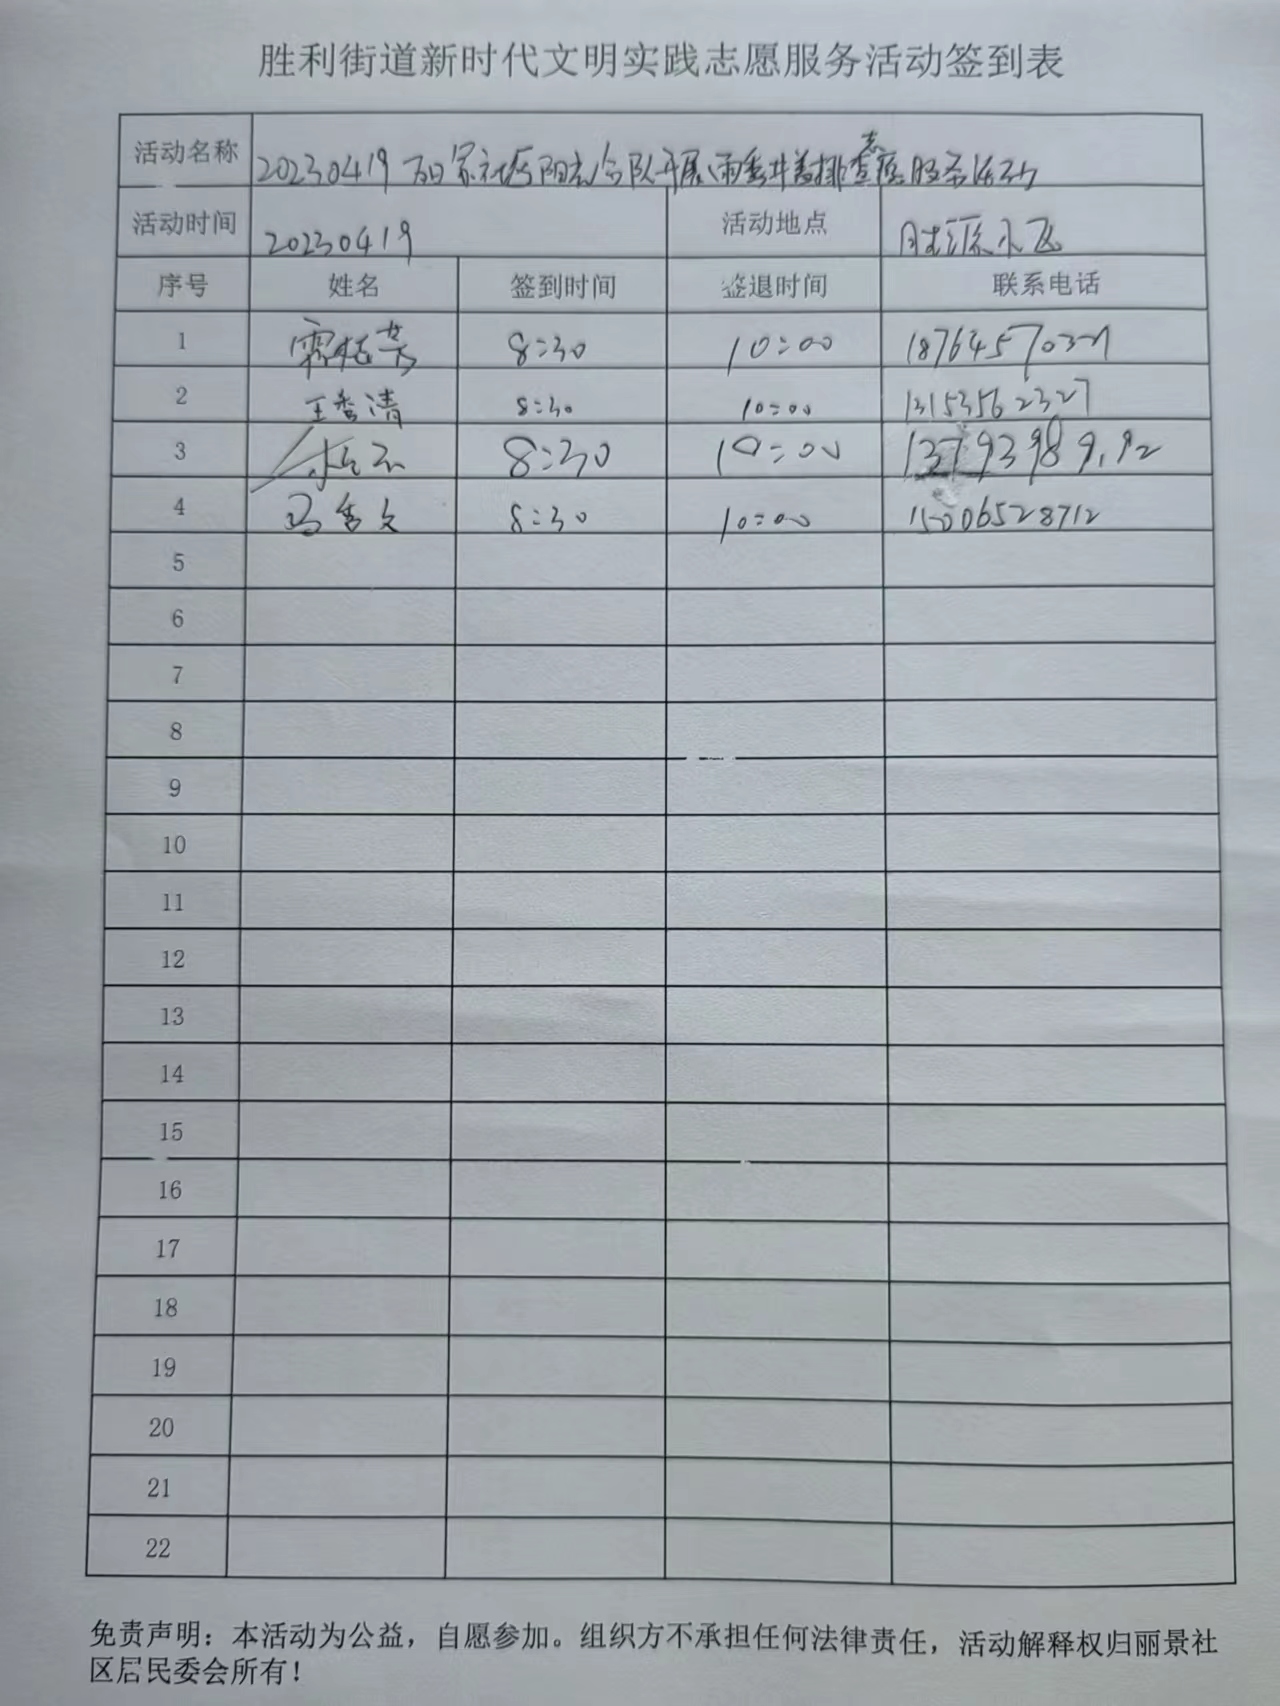 胜利街道新时代文明实践志愿服务活动签到表
活动名称 20230419 社区阳光合队开展雨季井盖排查志愿服务活动
活动时间 20230419 活动地点 胜源小区
序号 姓名 签到时间 签退时间 联系电话
1 8:30 10:00
2 王秀清 8:30 10:00 13153562327
3 8:30 10:00
4 马秀文 8:30 10:00 15006528712
5
6
7
8
9
10
11
12
13
14
15
16
17
18
19
20
21
22
免责声明：本活动为公益，自愿参加。组织方不承担任何法律责任，活动解释权归丽景社
区居民委会所有！